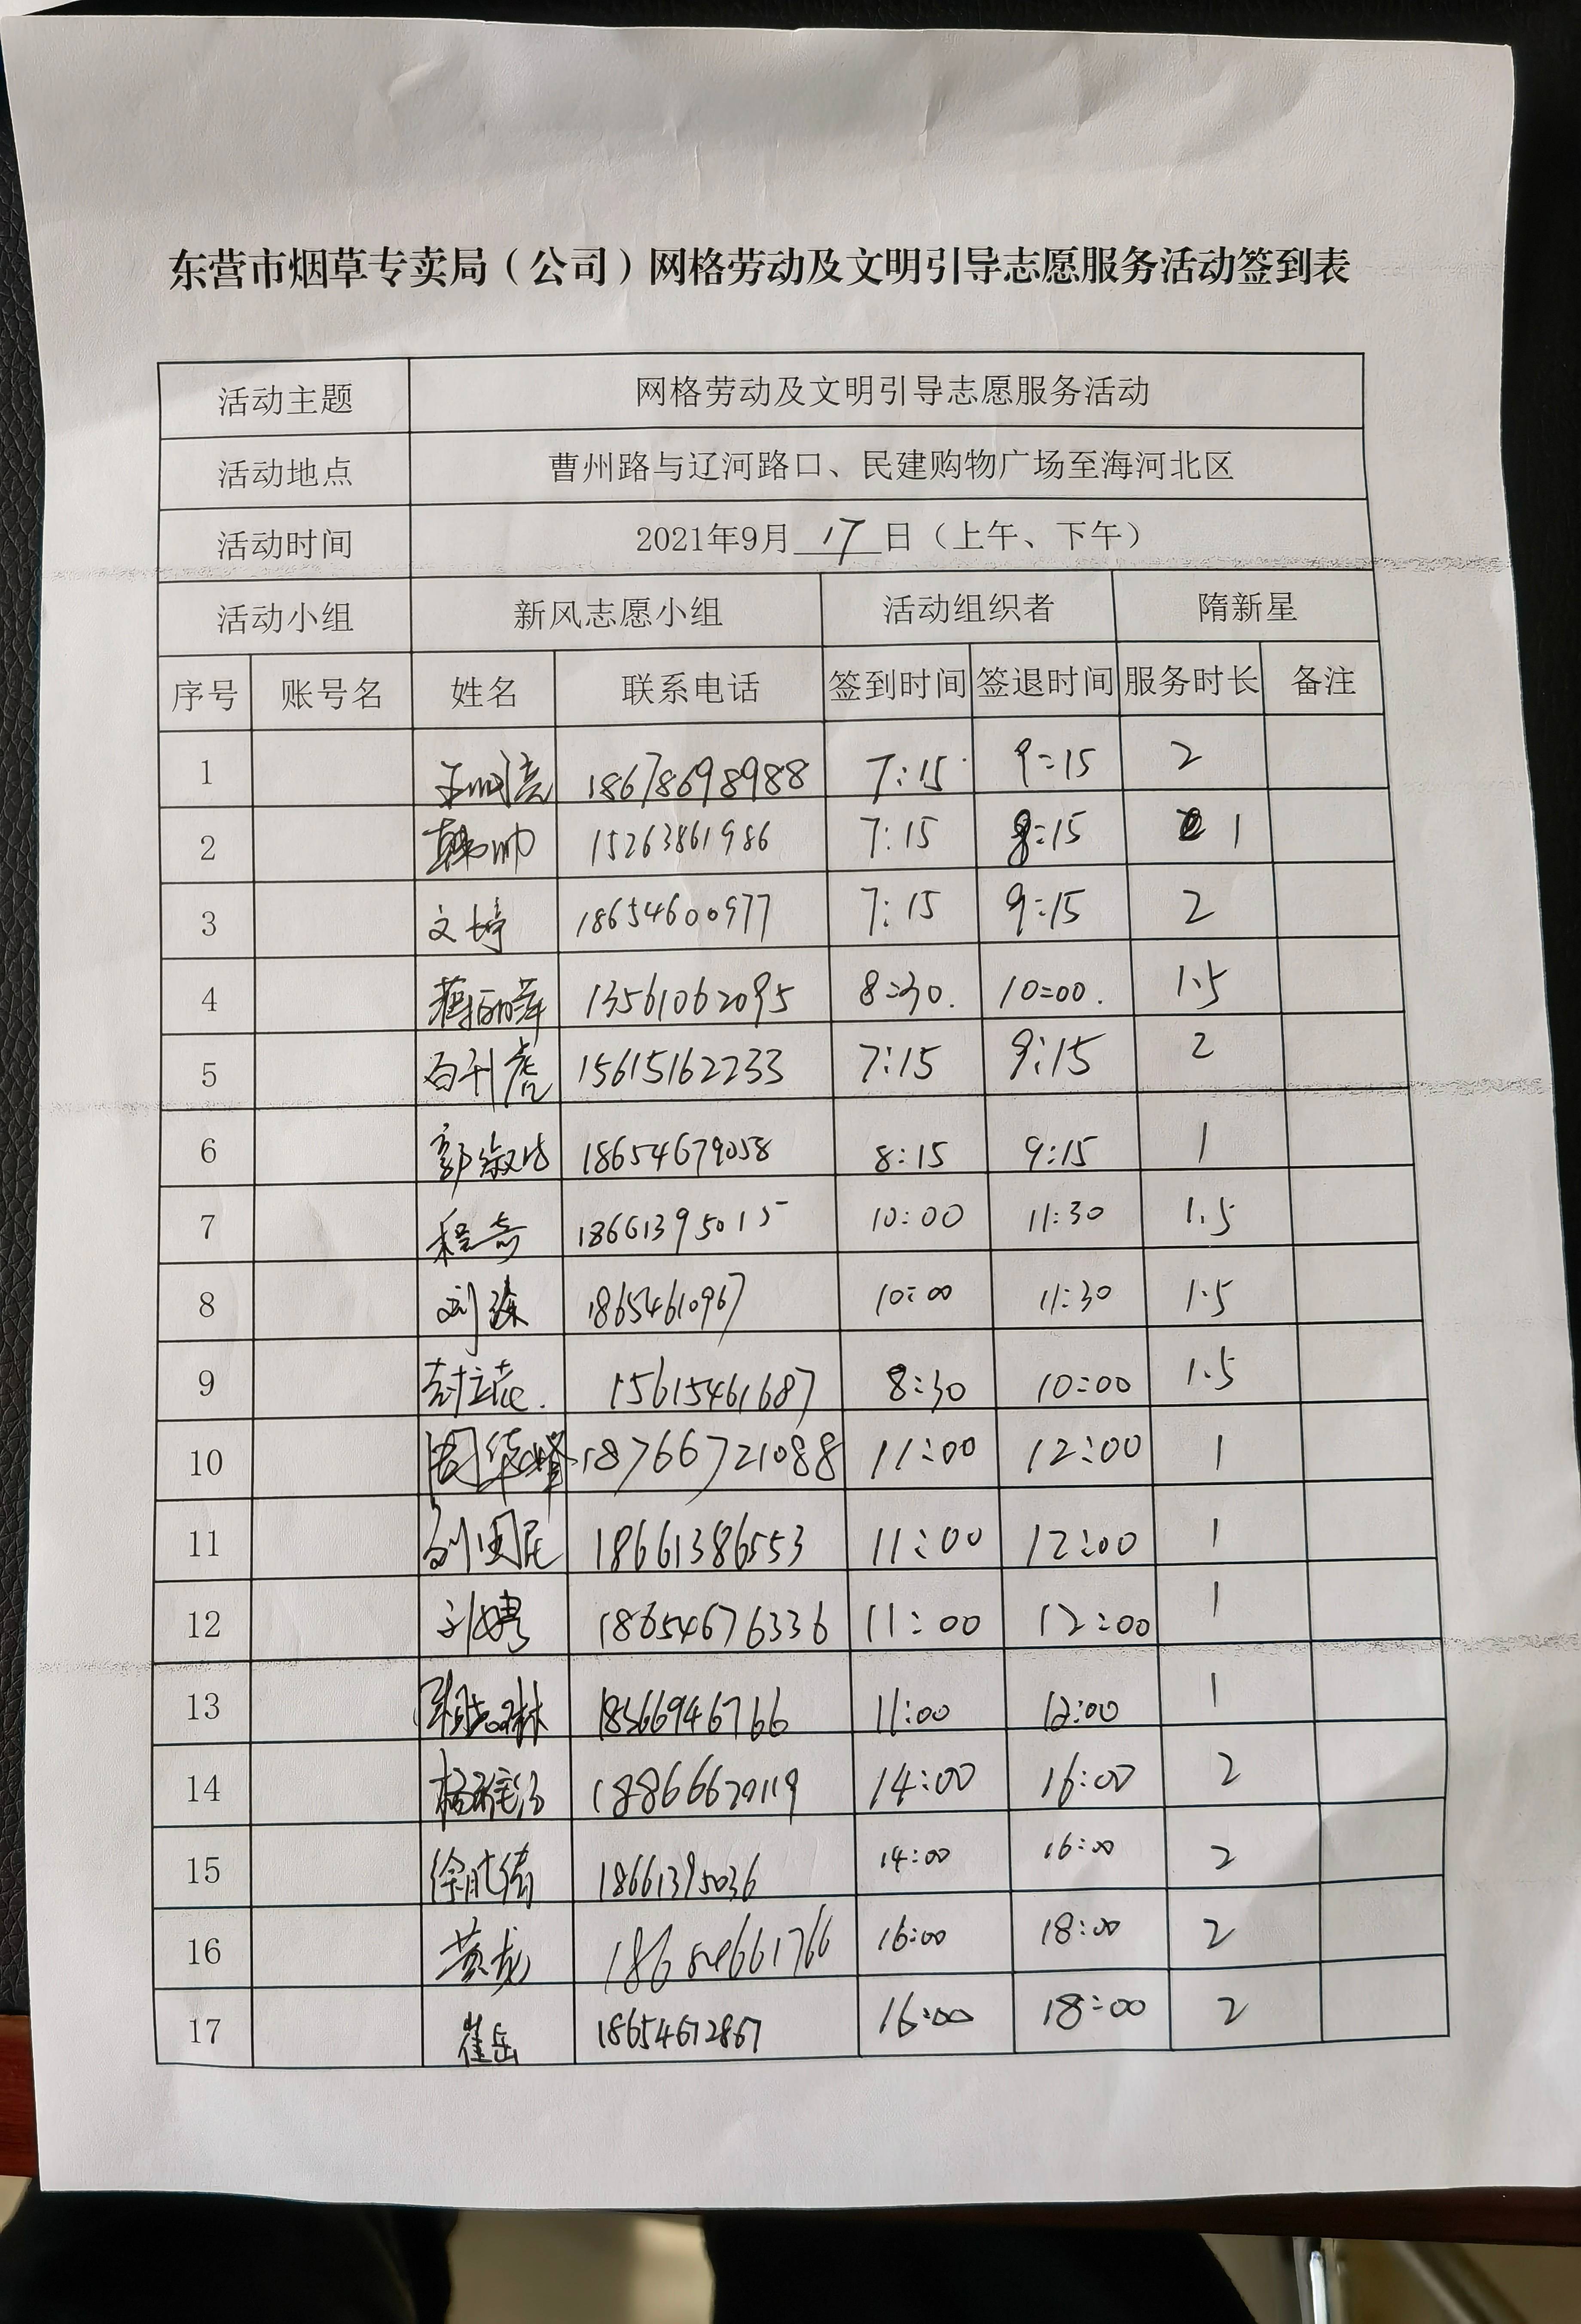 东营市烟草专卖局（公司）网格劳动及文明引导志愿服务活动签到表
活动主题 网格劳动及文明引导志愿服务活动
活动地点 曹州路与辽河路口、民建购物广场至海河北区
活动时间 2021年9月17日（上午、下午）
活动小组 新风志愿小组 活动组织者 隋新星
序号 账号名 姓名 联系电话 签到时间 签退时间 服务时长 备注
1 18678698988 7:15 9:15 2
2 韩帅 15263861986 7:15 8:15 1
3 文婷 18654600977 7:15 9:15 2
4 13561062095 8:30. 10:00. 1.5
5 15615162233 7:15 9:15 2
6 18654679058 8:15 9:15 1
7 程奇 18661395015 10:00 11:30 1.5
8 18654610967 10:00 11:30 1.5
9 15615461687 8:30 10:00 1.5
10 18766721088 11:00 12:00 1
11 刘国民 18661386553 11:00 12:00 1
12 刘娉 18654676336 11:00 12:00 1
13 18566946766 11:00 12:00 1
14 18866620119 14:00 16:00 2
15 18661395036 14:00 16:00 2
16 黄龙 18654661766 16:00 18:00 2
17 崔岳 18654672867 16:00 18:00 2